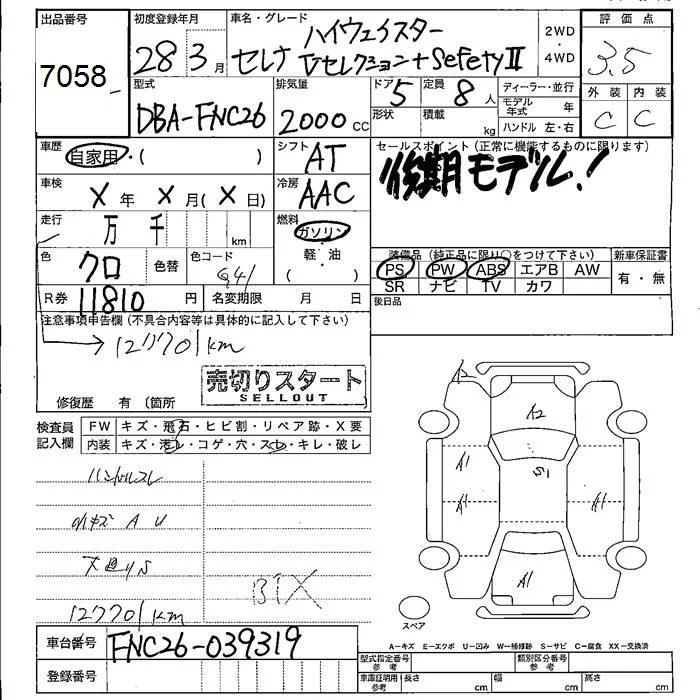 出品番号 初度登録年月 車名・グレード 評価点
7058 28年 3月 セレナ ハイウェイスター
Vセレクション+SefetyⅡ
2WD
・
4WD
3.5
外装 内装
C C
型式 排気量 ドア 定員 ディーラー・並行
DBA-FNC26 2000cc 5 8人 モデル年式 年
形状 積載 kg ハンドル 左・右
車歴 自家用・( ) シフト AT セールスポイント (正常に機能するものに限ります)
後期モデル!
車検 X年 X月(X日) 冷房 AAC
走行 万 千 km 燃料 ガソリン
軽・油
( )
装備品 (純正品に限り○をつけて下さい) 新車保証書
色 クロ 色替 色コード G41
PS PW ABS エアB AW 有・無
SR ナビ TV カワ
R券 11810円 名変期限 月 日 後日品
注意事項申告欄 (不具合内容等は具体的に記入して下さい)
→127701km
売切りスタート
SELLOUT
修復歴 有 (箇所
検査員記入欄 FW キズ・飛石・ヒビ割・リペア跡・X要
内装 キズ・汚レ・コゲ・穴・スレ・キレ・破レ
ハンドルスレ
A2
A1 S1
A1 A1
A1
127701km
スペア
車台番号 FNC26-039319
A-キズ E-エクボ U-凹み W-補修跡 S-サビ C-腐食 XX-交換済
登録番号 型式指定番号 参考 類別区分番号 参考
車庫証明用 参考 長さ cm 幅 cm 高さ cm